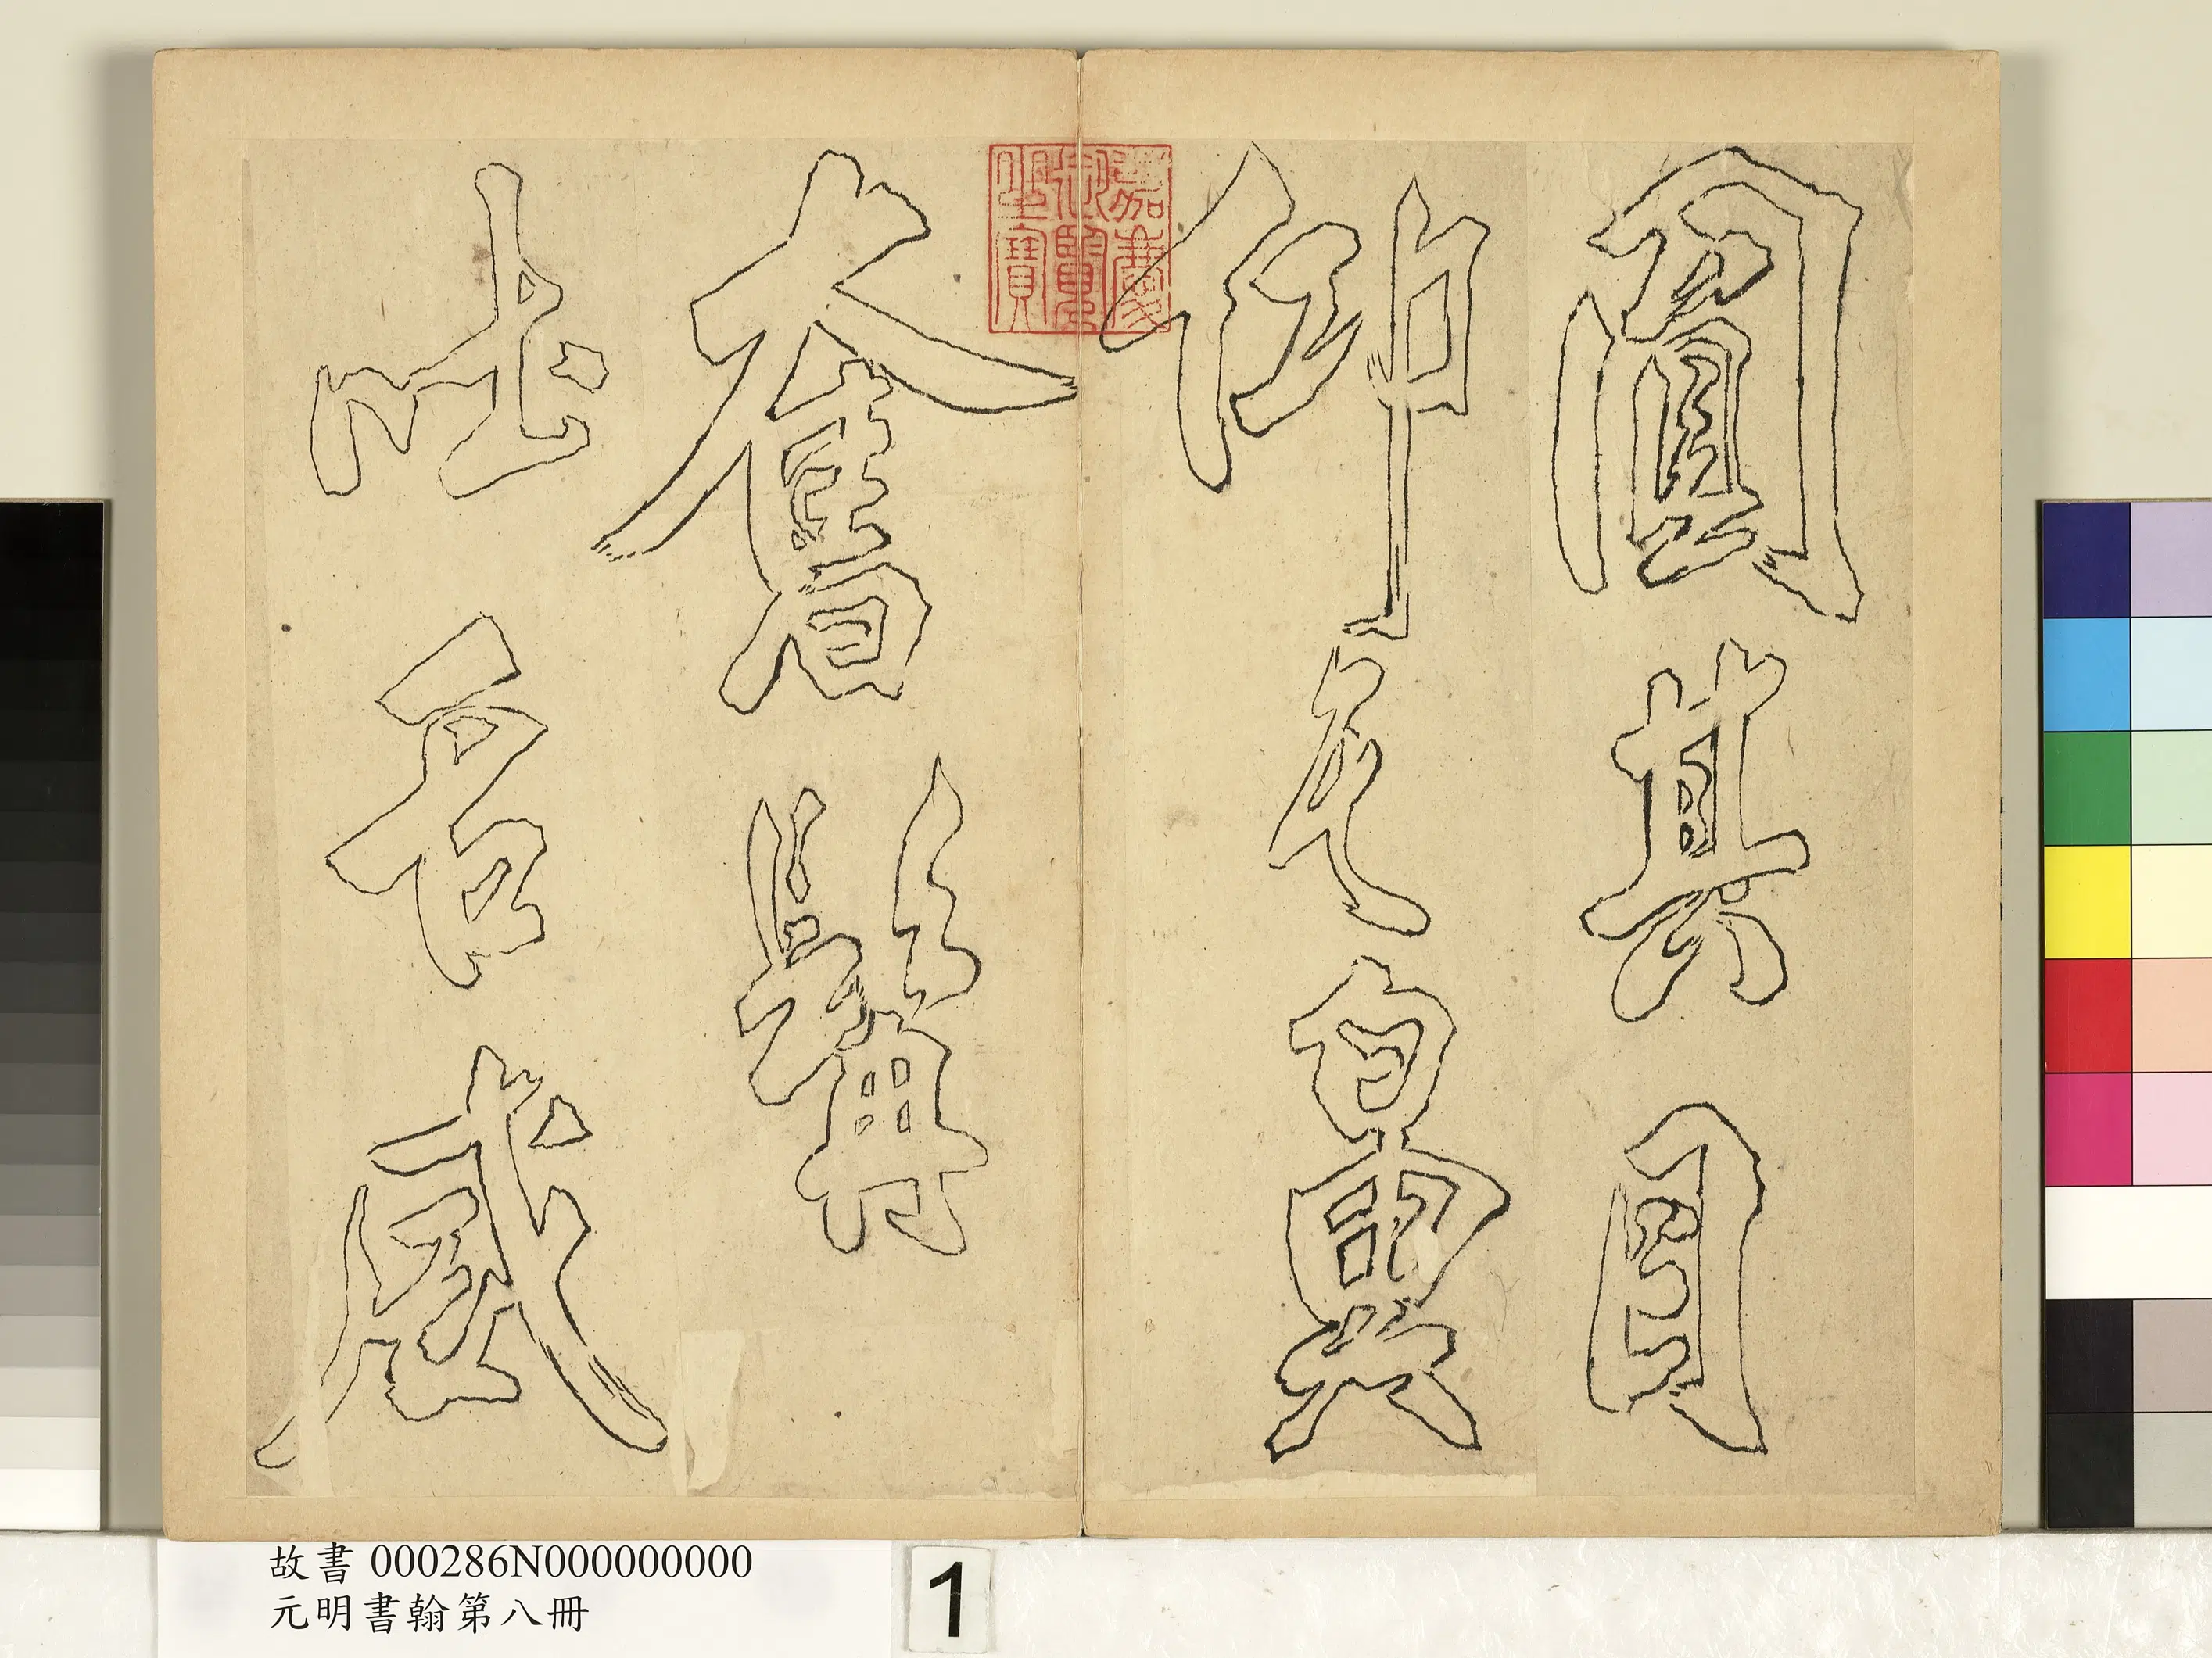 圓其目
仰其鼻
奮髯
吐舌威
嘉慶御覽之寶
故書 000286N000000000
元明書翰第八冊
1